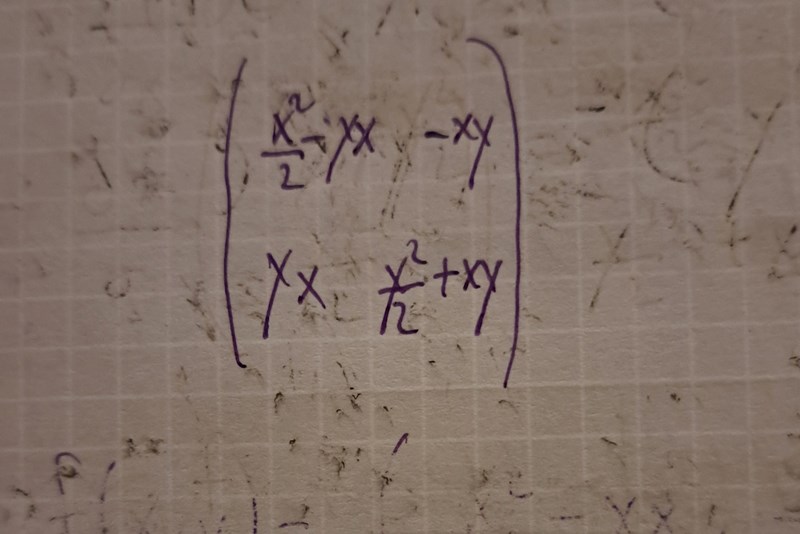 x²/2 - yx   -xy
yx   y²/2 + xy